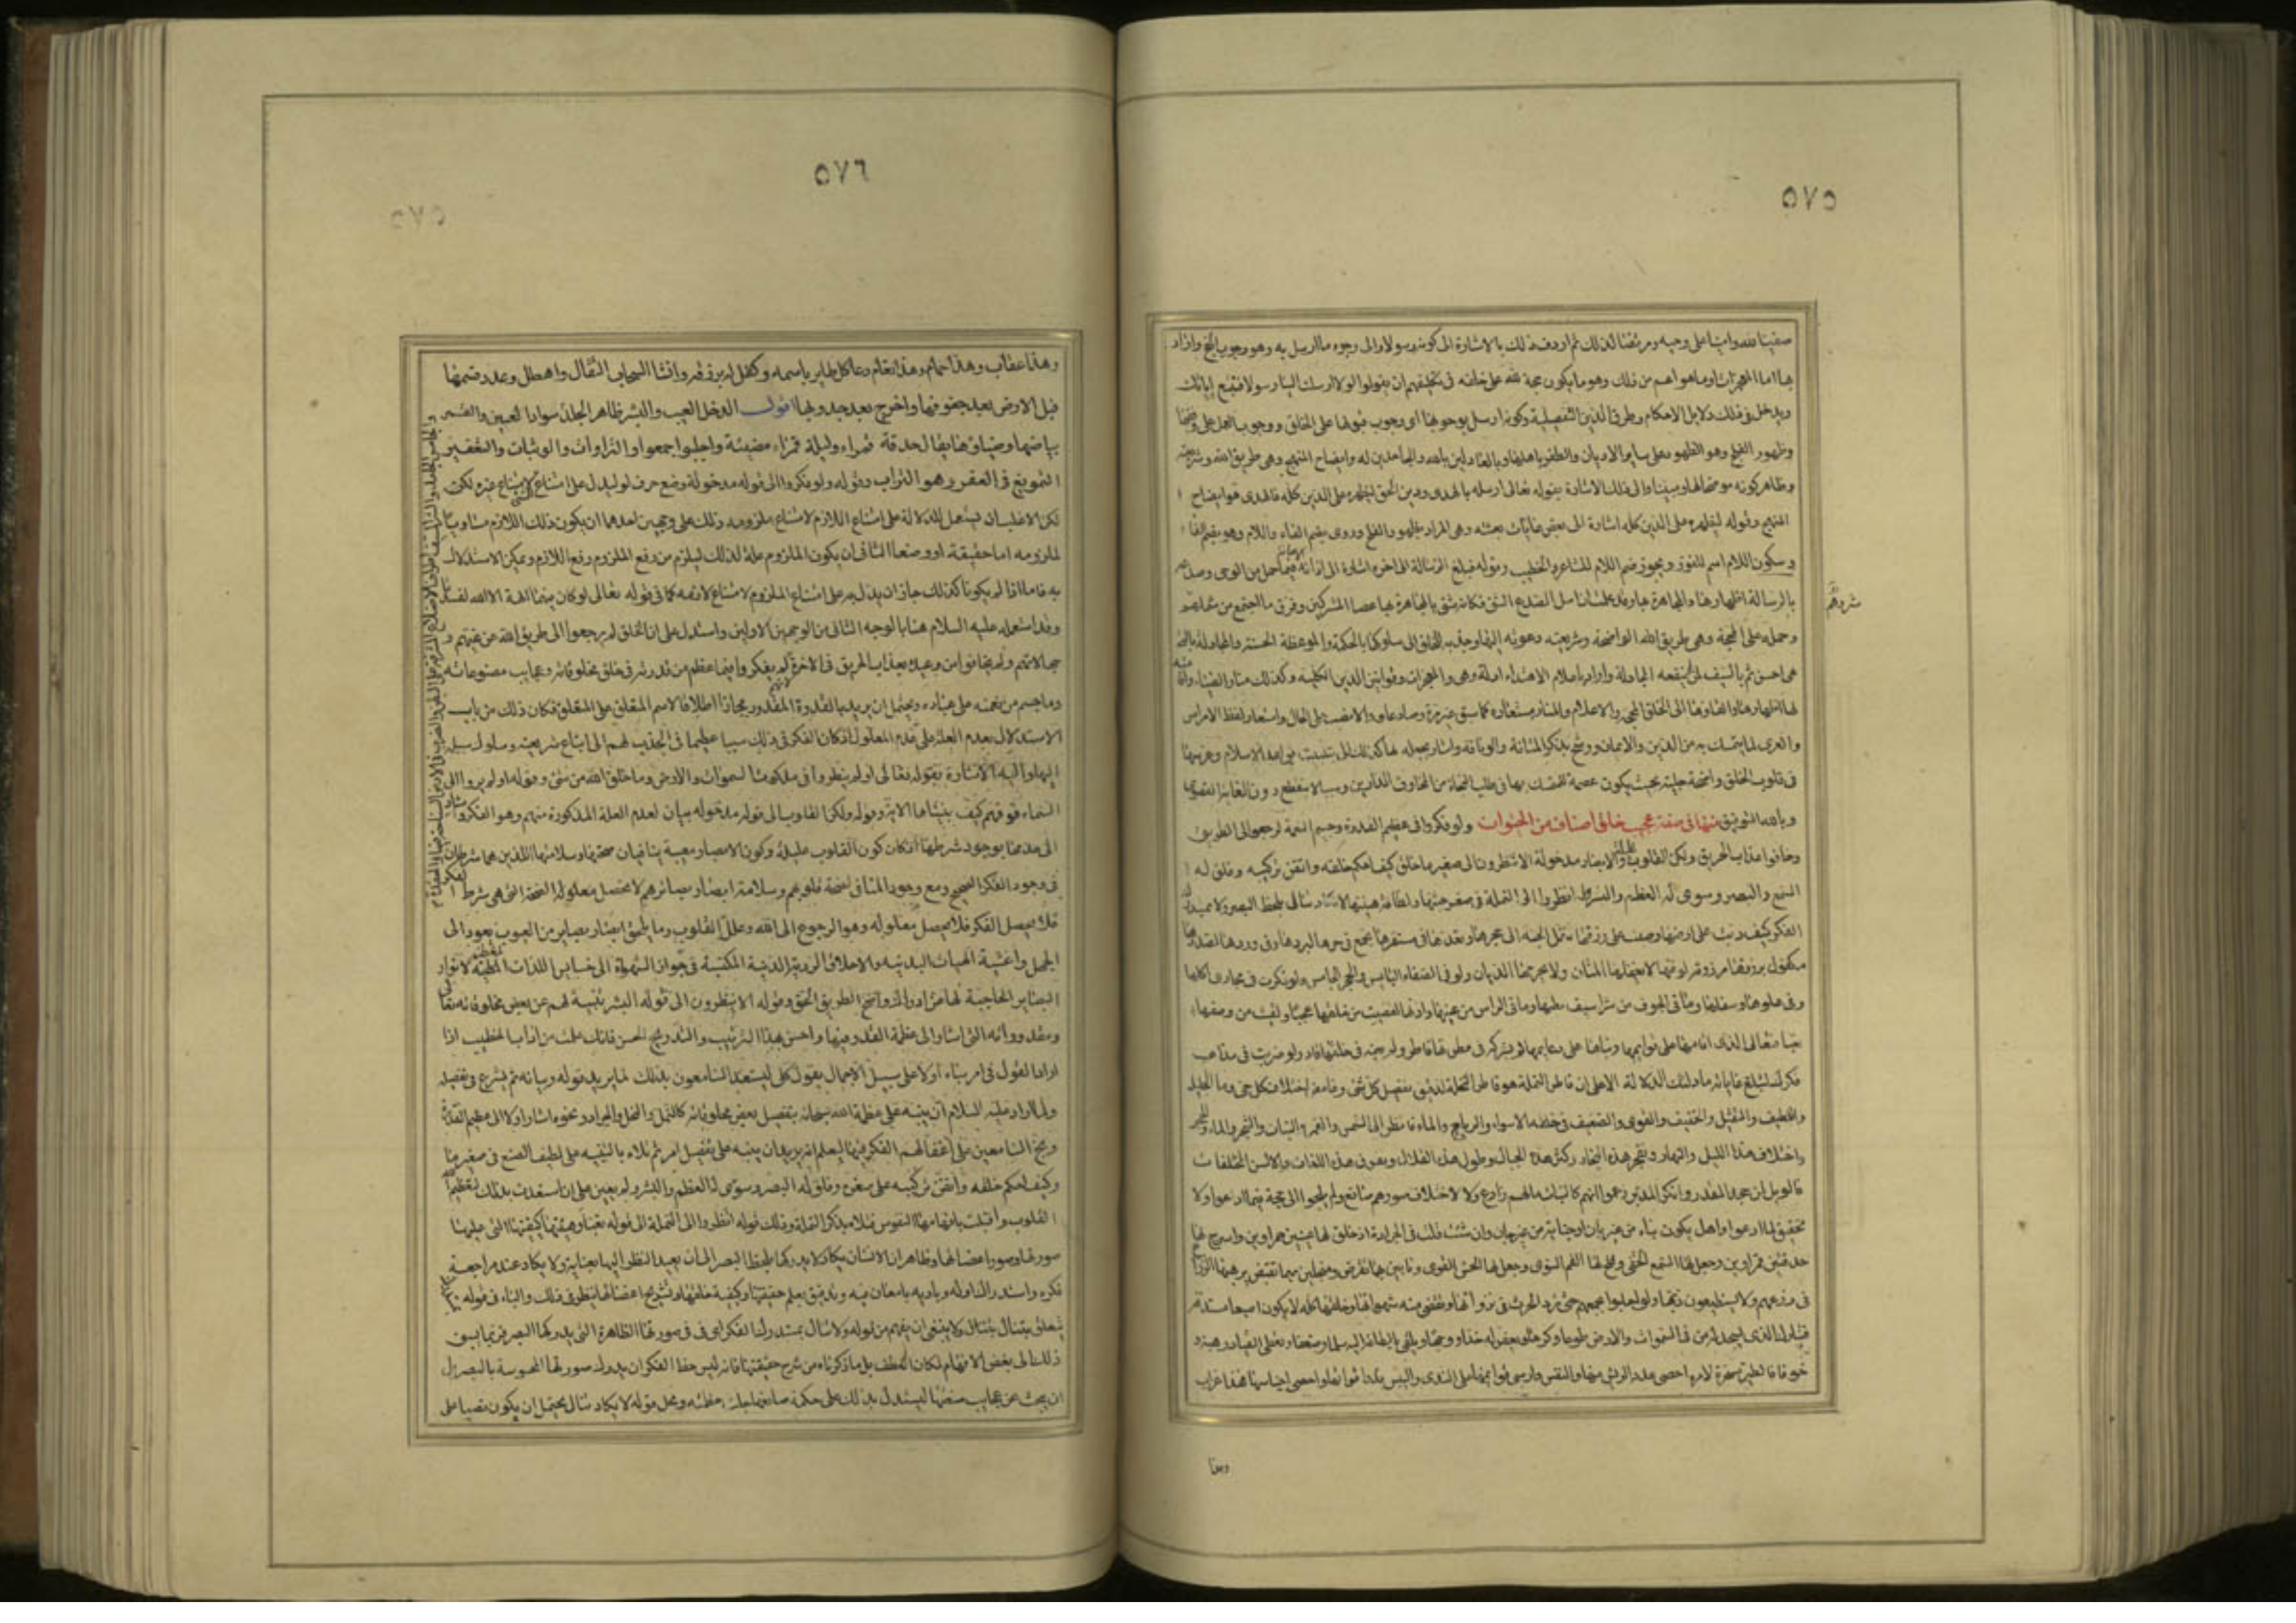 ٥٧٥
صفينا لله وامينا على وحيه ومرتضا لذلك ثم اردف ذلك بالاشارة الى كونه رسولا والى وجوه ما ارسل به وهو وجوب الحجج واراد
بها اما المعجزات او ما هو اعم من ذلك وهو ما يكون حجة لله على خلقه فى تكليفهم ان يقولوا لولا ارسلت الينا رسولا فنتبع اياتك
ويدخل فى ذلك دلايل الاحكام وطرق الدين التفصيلية وكونه ارسل بوجوبها اى وجوب قبولها على الخلق ووجوب العمل على وفقها
وظهور الفلج وهو الظهور على ساير الاديان والظفر باهلها وبالعادلين بالله والجاحدين له وايضاح المنهج وهى طريق الله وشريعته
وظاهر كونه موضحا لها ومبينا والى ذلك الاشارة بقوله تعالى ارسله بالهدى ودين الحق ليظهره على الدين كله فالهدى هو ايضاح
المنهج وقوله ليظهره على الدين كله اشارة الى بعض غايات بعثته وهى المراد بظهور الفلج وروى بضم الفاء واللام وهو بضم الفاء
وسكون اللام اسم للفوز ويجوز ضم اللام للشاعر والخطيب وقوله فبلغ الرسالة الى اخره اشارة الى ادائه الامانة فيما حمل من الوحى وصدعه
بالرسالة اظهارها والمجاهرة بها وقد علمت ان اصل الصدع الشق فكانه شق بالمجاهرة بها عصا المشركين وفرق ما اجتمع من شرهم
شرهم
وحمله على المحجة وهى طريق الله الواضحة وشريعته دعوته اليها وجذبه للخلق الى سلوكها بالحكمة والموعظة الحسنة والمجادلة بالتى
هى احسن ثم بالسيف لمن لم ينفعه المجادلة واراد باعلام الاهتداء ادلة وهى المعجزات وقوانين الدين الكلية وكذلك منار الضياء واقامته
لها اظهارها والقاؤها الى الخلق
والعرى لما يتمسك به من الدين والايمان ورشح بذكر المتانة والوثاقة واشار بجعله لها كذلك الى تثبيت قواعد الاسلام وغرسها
فى قلوب الخلق واضحة جلية بحيث يكون عصمة للمتمسك بها فى طلب النجاة من مخاوف الدارين وسببا لا ينقطع دون الغاية القصوى
وبالله التوفيق منها فى صفة عجيب خلق اصناف من الحيوانات ولو فكروا فى عظيم القدرة وجسيم النعمة لرجعوا الى الطريق
وخافوا عذاب الحريق ولكن القلوب عليلة والابصار مدخولة الا ينظرون الى صغير ما خلق كيف احكم خلقه واتقن تركيبه وفلق له
السمع والبصر وسوى له العظم والبشر انظروا الى النملة فى صغر جثتها ولطافة هيئتها لا تكاد تنال بلحظ البصر ولا بمستدرك
الفكر كيف دبت على ارضها وصبت على رزقها تنقل الحبة الى جحرها وتعدها فى مستقرها تجمع فى حرها لبردها وفى وردها لصدرها
مكفول برزقها مرزوقة لوفقها لا يغفلها المنان ولا يحرمها الديان ولو فى الصفاء اليابس والحجر الجامس ولو فكرت فى مجارى اكلها
وفى علوها وسفلها وما فى الجوف من شراسيف بطنها وما فى الراس من عينها واذنها لقضيت من خلقها عجبا ولقيت من وصفها
تعبا فتعالى الذى اقامها على قوايمها وبناها على دعايمها لم يشركه فى فطرتها فاطر ولم يعنه فى خلقها قادر ولو ضربت فى مذاهب
فكرك لتبلغ غاياته ما دلتك الدلالة الا على ان فاطر النملة هو فاطر النخلة لدقيق تفصيل كل شئ وغامض اختلاف كل حى وما الجليل
واللطيف والثقيل والخفيف والقوى والضعيف فى خلقه الا سواء والرياح والماء فانظر الى الشمس والقمر والنبات والشجر والماء والحجر
واختلاف هذا الليل والنهار وتفجر هذه البحار وكثرة هذه الجبال وطول هذه القلال وتفرق هذه اللغات والالسن المختلفات
فالويل لمن جحد المقدر وانكر المدبر زعموا انهم كالنبات مالهم زارع ولا لاختلاف صورهم صانع ولم يلجوا الى حجة فيما ادعوا ولا
تحقيق لما ادعوا وهل يكون بناء من غير بان او جناية من غير جان وان شئت قلت فى الجرادة اذ خلق لها عينين حمراوين واسرج لها
حدقتين قمراوين وجعل لها السمع الخفى وفتح لها الفم السوى وجعل لها الحس القوى ونابين بهما تقرض ومنجلين بهما تقبض يرهبها الزراع
فى زرعهم ولا يستطيعون ذبها ولو اجلبوا بجمعهم حتى ترد الحرث فى نزواتها وتقضى منه شهواتها وخلقها كله لا يكون اصبعا مستدقة
فتبارك الذى يسجد له من فى السموات والارض طوعا وكرها ويعفر له خدا ووجها ويلقى بالطاعة اليه سلما وضعفا ويعطى القياد رهبة و
خوفا فالطير مسخرة لامره احصى عدد الريش منها والنفس وارسى قوايمها على الندى واليبس قدر اقواتها واحصى اجناسها فهذا غراب
وهذا
٥٧٦
وهذا عقاب وهذا حمام وهذا نعام دعا كل طاير باسمه وكفل له برزقه وانشا السحاب الثقال واهطل وعدد قسمها
فبل الارض بعد جفوفها واخرج بعد جدوبها اقول الدخل العيب والبشر ظاهر الجلد
بياضها وضياؤها يقال حدقة قمراء وليلة قمراء مضيئة واجلبوا جمعوا والنزوات والوثبات والتعفير
التمريغ فى العفر وهو التراب وقوله ولو فكروا الى قوله مدخولة وضع حرف لو ليدل على امتناع الشئ لامتناع غيره لكن
الاغلب ان يستعمل للدلالة على امتناع اللازم لامتناع ملزومه وذلك على وجهين احدهما ان يكون ذلك اللازم مساويا
لملزومه اما حقيقة او وضعا الثانى ان يكون الملزوم علة لذلك ليلزم من رفع الملزوم رفع اللازم ويمكن الاستدلال
به فاما اذا لم يكونا كذلك جاز ان يدل به على امتناع الملزوم لامتناع لازمه كما فى قوله تعالى لو كان فيهما الهة الا الله لفسدتا
وقد استعمله عليه السلام هنا بالوجه الثانى من الوجهين الاولين واستدل على ان الخلق لم يرجعوا الى طريق الله عن غيهم و
جهالاتهم ولم يخافوا من وعيده بعذاب الحريق فى الاخرة لانهم لم يفكروا فيما عظم من قدرته فى خلق مخلوقاته وعجايب مصنوعاته
وما جسم من نعمته على عباده ويحتمل ان يريد بالقدرة المقدور مجازا اطلاقا لاسم المتعلق على المتعلق فكان ذلك من باب
الاستدلال بعدم العلة على عدم المعلول اذ كان الفكر فى ذلك سببا عظيما فى الجذب لهم الى اتباع شريعته وسلوك سبيله
اليها واليه الاشارة بقوله تعالى اولم ينظروا فى ملكوت السموات والارض وما خلق الله من شئ وقوله اولم يروا الى
السماء فوقهم كيف بنيناها الاية وقوله ولكن القلوب الى قوله مدخولة بيان لعدم العلة المذكورة منهم وهو الفكر واشار
الى عدمها بوجود شرطها اذ كان كون القلوب عليلة وكون الابصار معيبة ينافيان صحتها وسلامتها اللذين هما شرطان
فى وجود الفكر الصحيح ومع وجود المنافى لصحة قلوبهم وسلامة ابصار بصايرهم لا يحصل معلوله الصحة التى هى شرط الفكر
فلا يحصل الفكر فلا يحصل معلوله وهو الرجوع الى الله وعلل القلوب وما يلحق ابصار بصاير من العيوب يعود الى
الجهل واغشية الهيات البدنية والاخلاق الردية الدنية المكتسبة
البصاير الحاجبة لها عن ادراك واضح الطريق الحق وقوله الا ينظرون الى قوله البشر تنبيه لهم عن بعض مخلوقاته تعالى
ومقدوراته التى اشار الى عظمة القدرة فيها واحسن بهذا الترتيب والتدريج الحسن فانك علمت من اداب الخطيب اذا
اراد القول فى امر بناء اولا على سبيل الاجمال بقول كلى ليستعد السامعون بذلك لما يريد قوله وبيانه ثم يشرع فى تفصيله
ولما اراد عليه السلام ان ينبه على عظمة الله سبحانه بتفصيل بعض مخلوقاته كالنمل والنحل والجراد ونحوه اشار اولا الى عظيم القدرة
وبخ السامعين على اغفالهم الفكر فيها ليعلم انه يريد ان ينبه على تفصيل امر ثم تلاه بالتنبيه على لطيف الصنع فى صغير ما
وكيف احكم خلقه واتقن تركيبه على صغره وفلق له البصر وسوى له العظم والبشر ولم يعين على ان استعدت بذلك لتعظيم
القلوب واقبلت بافهامها النفوس فتلاه بذكر النملة وذلك قوله انظروا الى النملة الى قوله تعبا وهيئتها كيفيتها التى عليها
صورتها وصور اعضائها وظاهر ان الانسان يكاد لا يدركها بلحظ البصر الى ان يعيد النظر اليها بعناية ولا يكاد عند مراجعة
فكره واستدراك اوله وباديه بامعان فيه وتدقيق يعلم حقيقتها وكيفية خلقها وتشريح اعضائها لينظر فى ذلك والباء فى قوله
تتعلق بتنال ولا ينبغى ان يفهم من قوله ولا تنال بمستدرك الفكر اى فى صورتها الظاهرة التى يدركها البصر فربما يسبق
ذلك الى بعض الافهام لمكان العطف بل ما ذكرناه من شرح حقيقتها فانه ليس حظ الفكر ان يدرك صورتها المحسوسة بالبصر بل
ان يبحث عن عجايب صنعتها ليستدل بذلك على حكمة صانعها جلت عظمته ومحل قوله لا يكاد تنال يحتمل ان يكون نصبا على